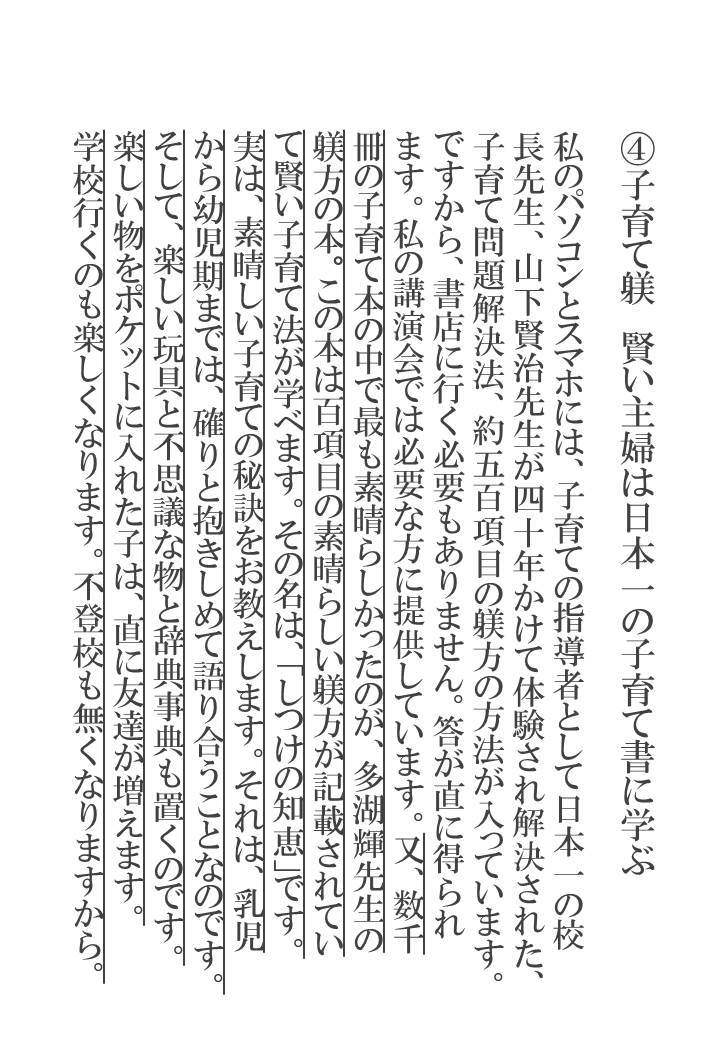 ④子育て躾　賢い主婦は日本一の子育て書に学ぶ
私のパソコンとスマホには、子育ての指導者として日本一の校
長先生、山下賢治先生が四十年かけて体験され解決された、
子育て問題解決法、約五百項目の躾方の方法が入っています。
ですから、書店に行く必要もありません。答が直に得られ
ます。私の講演会では必要な方に提供しています。又、数千
冊の子育て本の中で最も素晴らしかったのが、多湖輝先生の
躾方の本。この本は百項目の素晴らしい躾方が記載されてい
て賢い子育て法が学べます。その名は、「しつけの知恵」です。
実は、素晴しい子育ての秘訣をお教えします。それは、乳児
から幼児期までは、確りと抱きしめて語り合うことなのです。
そして、楽しい玩具と不思議な物と辞典事典も置くのです。
楽しい物をポケットに入れた子は、直に友達が増えます。
学校行くのも楽しくなります。不登校も無くなりますから。